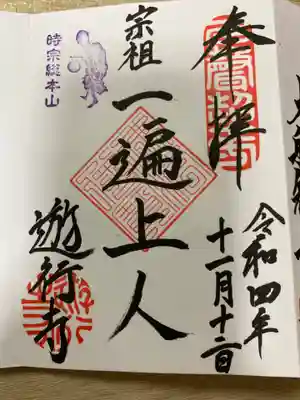 奉拝
令和四年
十一月十二日
宗祖
一遍上人
時宗総本山
遊行寺